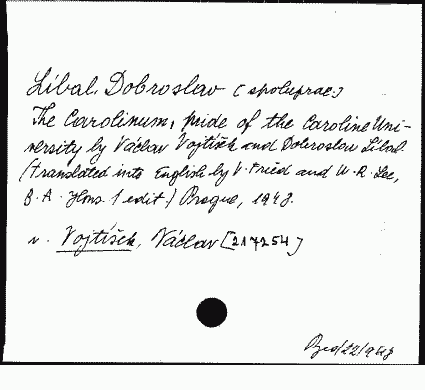 Líbal, Dobroslav (spoluprac.)
The Carolinum, pride of the Caroline Uni-
versity by Václav Vojtíšek and Dobroslav Líbal.
(Translated into English by V. Fried and W. R. Lee,
B. A. Hons. 1 edit.) Prague, 1948.
v. Vojtíšek, Václav [217254]